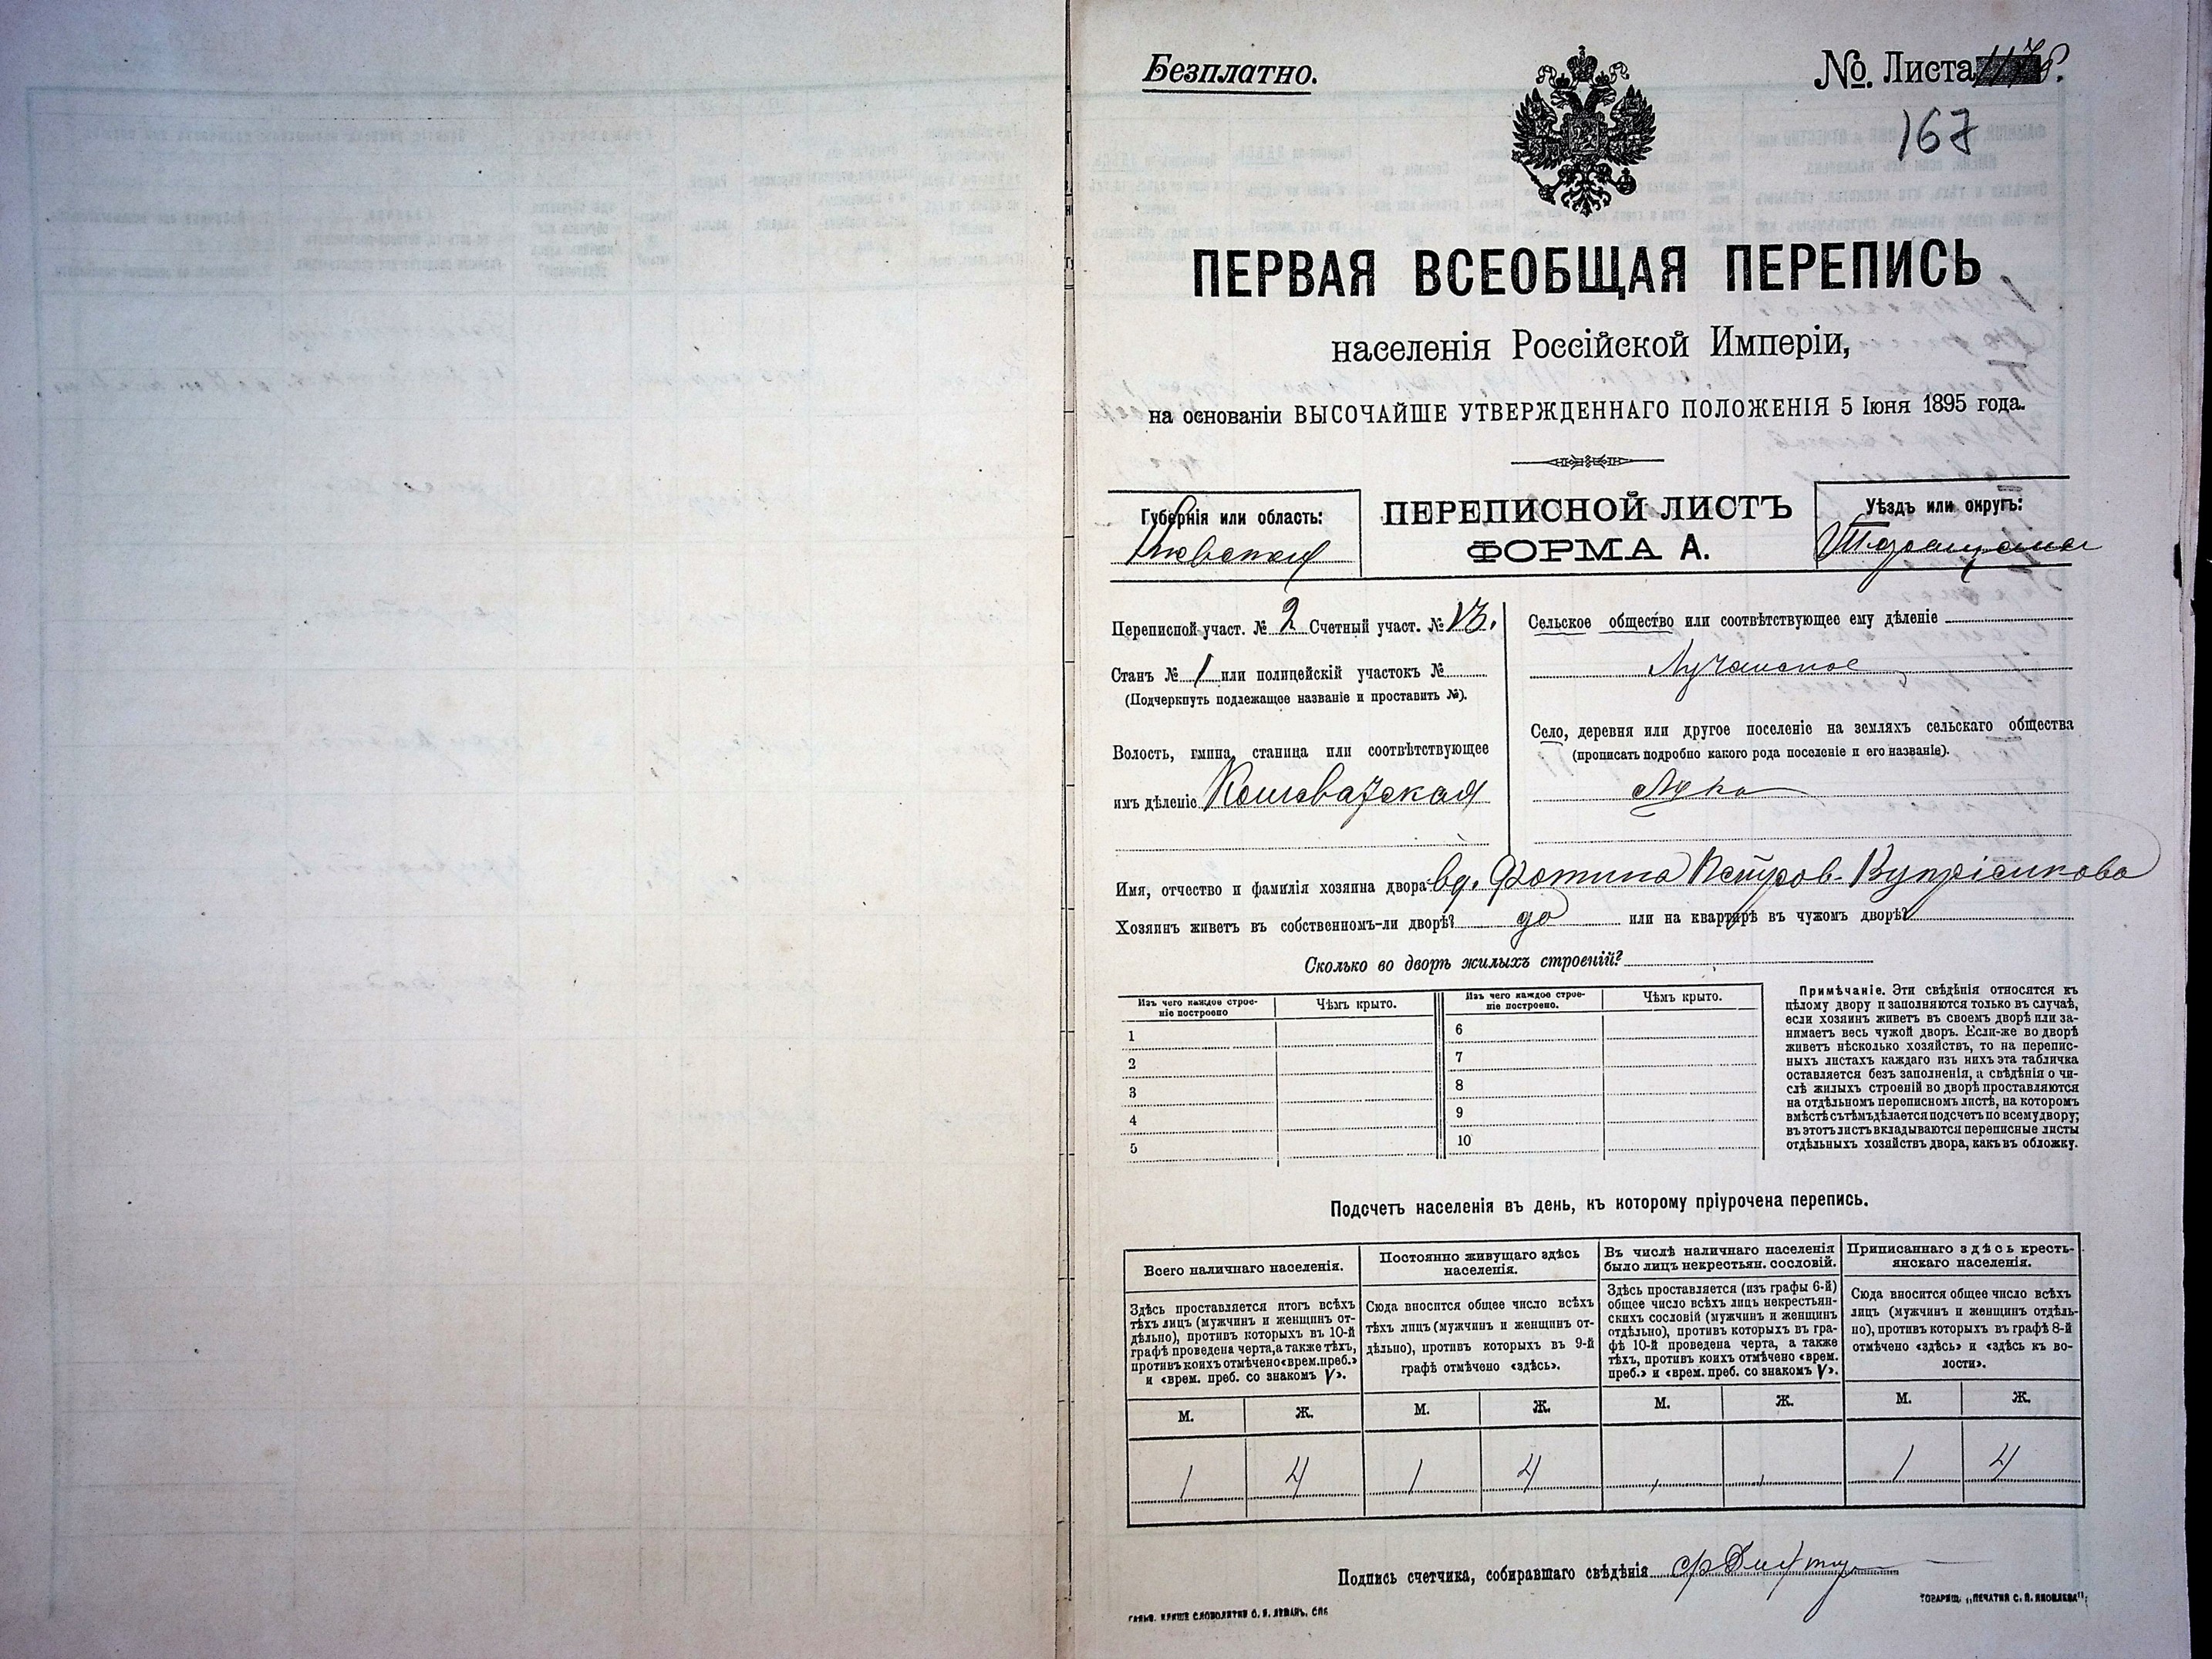 Безплатно.
№ Листа
167
ПЕРВАЯ ВСЕОБЩАЯ ПЕРЕПИСЬ
населенія Россійской Имперіи,
на основаніи ВЫСОЧАЙШЕ УТВЕРЖДЕННАГО ПОЛОЖЕНІЯ 5 Іюня 1895 года.
Губернія или область:
Кіевская
ПЕРЕПИСНОЙ ЛИСТЪ
ФОРМА А.
Уѣздъ или округъ:
Таращанск
Переписной участ. № 2 Счетный участ. № 13.
Станъ № 1 или полицейскій участокъ №
(Подчеркнуть подлежащее названіе и проставить №).
Волость, гмина, станица или соотвѣтствующее
имъ дѣленіе Кошеватская
Сельское общество или соотвѣтствующее ему дѣленіе
Лучанское
Село, деревня или другое поселеніе на земляхъ сельскаго общества
(прописать подробно какого рода поселеніе и его названіе).
Лука
Имя, отчество и фамилія хозяина двора вд. Фотина Петров. Купріенкова
Хозяинъ живетъ въ собственномъ-ли дворѣ? да или на квартирѣ въ чужомъ дворѣ?
Сколько во дворѣ жилыхъ строеній?
Изъ чего каждое строе-
ніе построено
Чѣмъ крыто.
Изъ чего каждое строе-
ніе построено.
Чѣмъ крыто.
1
2
3
4
5
6
7
8
9
10
Примѣчаніе. Эти свѣдѣнія относятся къ
цѣлому двору и заполняются только въ случаѣ,
если хозяинъ живетъ въ своемъ дворѣ или за-
нимаетъ весь чужой дворъ. Если-же во дворѣ
живетъ нѣсколько хозяйствъ, то на перепис-
ныхъ листахъ каждаго изъ нихъ эта табличка
оставляется безъ заполненія, а свѣдѣнія о чи-
слѣ жилыхъ строеній во дворѣ проставляются
на отдѣльномъ переписномъ листѣ, на которомъ
вмѣстѣ съ тѣмъ дѣлается подсчетъ по всему двору;
въ этотъ листъ вкладываются переписные листы
отдѣльныхъ хозяйствъ двора, какъ въ обложку.
Подсчетъ населенія въ день, къ которому пріурочена перепись.
Всего наличнаго населенія.
Здѣсь проставляется итогъ всѣхъ
тѣхъ лицъ (мужчинъ и женщинъ от-
дѣльно), противъ которыхъ въ 10-й
графѣ проведена черта, а также тѣхъ,
противъ коихъ отмѣчено «врем. преб.»
и «врем. преб. со знакомъ V».
Постоянно живущаго здѣсь
населенія.
Сюда вносится общее число всѣхъ
тѣхъ лицъ (мужчинъ и женщинъ от-
дѣльно), противъ которыхъ въ 9-й
графѣ отмѣчено «здѣсь».
Въ числѣ наличнаго населенія
было лицъ некрестьян. сословій.
Здѣсь проставляется (изъ графы 6-й)
общее число всѣхъ лицъ некрестьян-
скихъ сословій (мужчинъ и женщинъ
отдѣльно), противъ которыхъ въ гра-
фѣ 10-й проведена черта, а также
тѣхъ, противъ коихъ отмѣчено «врем.
преб.» и «врем. преб. со знакомъ V».
Приписаннаго здѣсь кресть-
янскаго населенія.
Сюда вносится общее число всѣхъ
лицъ (мужчинъ и женщинъ отдѣль-
но), противъ которыхъ въ графѣ 8-й
отмѣчено «здѣсь» и «здѣсь къ во-
лости».
М. Ж. М. Ж. М. Ж. М. Ж.
1 4 1 4 1 4
Подпись счетчика, собиравшаго свѣдѣнія
ГАЛЬВ. КЛИШЕ СЛОВОЛИТНИ О. И. ЛЕМАНЪ, СПБ
ТОВАРИЩ. „ПЕЧАТНЯ С. П. ЯКОВЛЕВА";